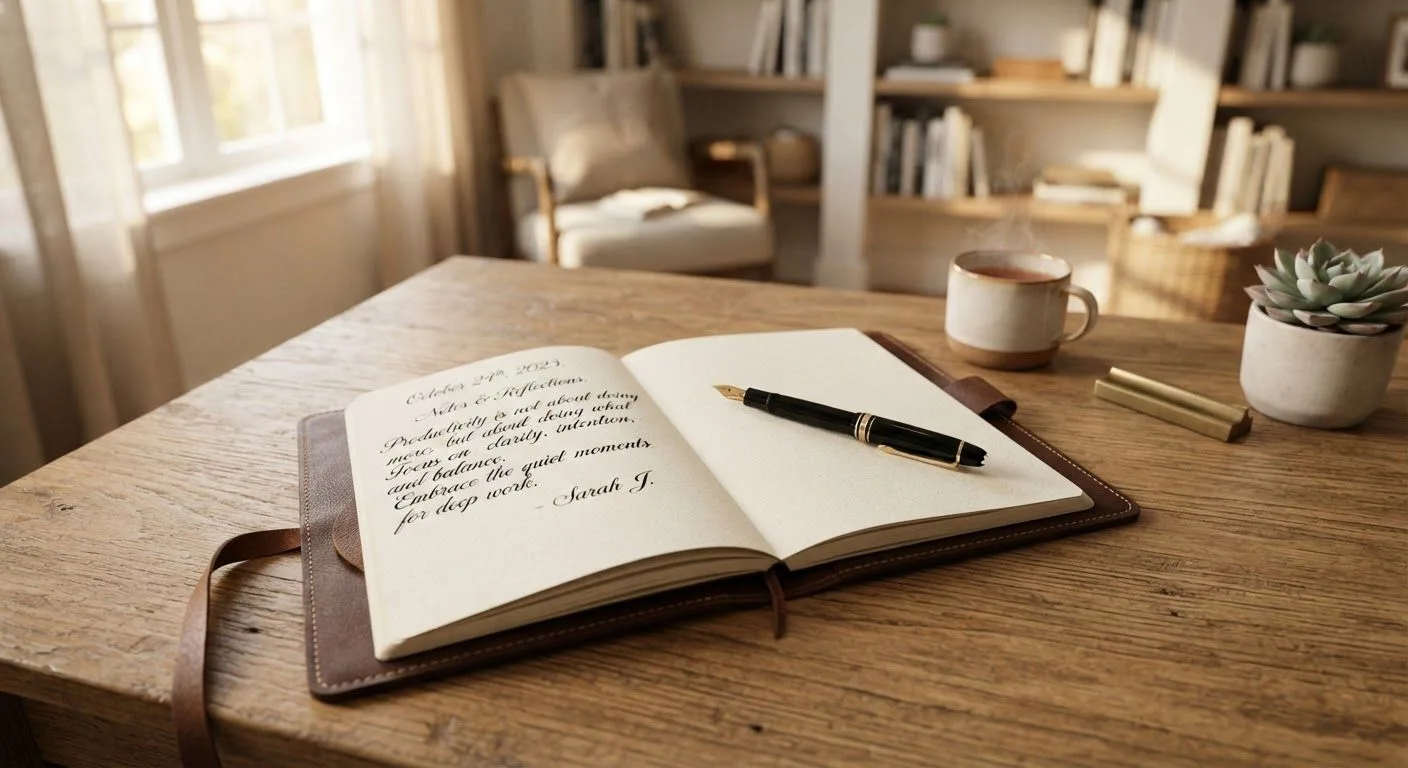 October 24th, 2023.
Notes & Reflections.
Productivity is not about doing
more, but about doing what
Focus on clarity, intention,
and balance.
Embrace the quiet moments
for deep work.
- Sarah J.